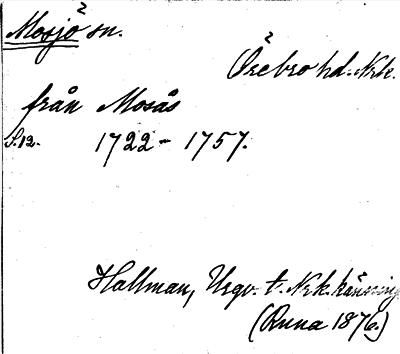 2
Mosjö sn.
2
Örebro hd. Nrk.
från Mosås
S.12. 1722 - 1757.
Hallman, Urgv. t. Nrk. känning
(Runa 1876.)